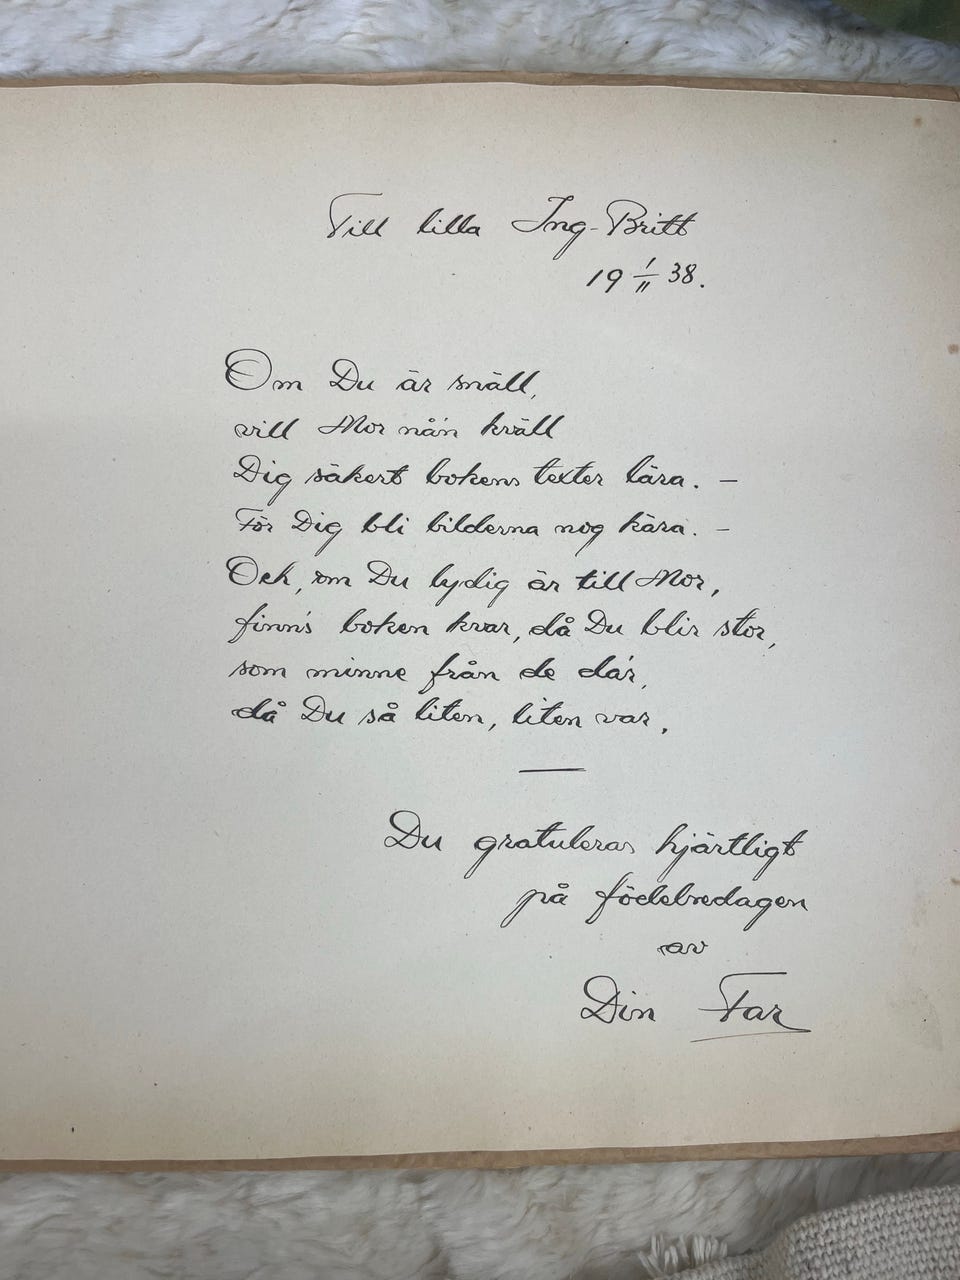 Till lilla Ing-Britt
19 1/11 38.
Om Du är snäll,
vill Mor nå'n kväll
Dig säkert bokens texter lära. —
För Dig bli bilderna nog kära. —
Och, om Du lydig är till Mor,
finns boken kvar, då Du blir stor,
som minne från de da'r,
då Du så liten, liten var.
Du gratuleras hjärtligt
på födelsedagen
av
Din Far